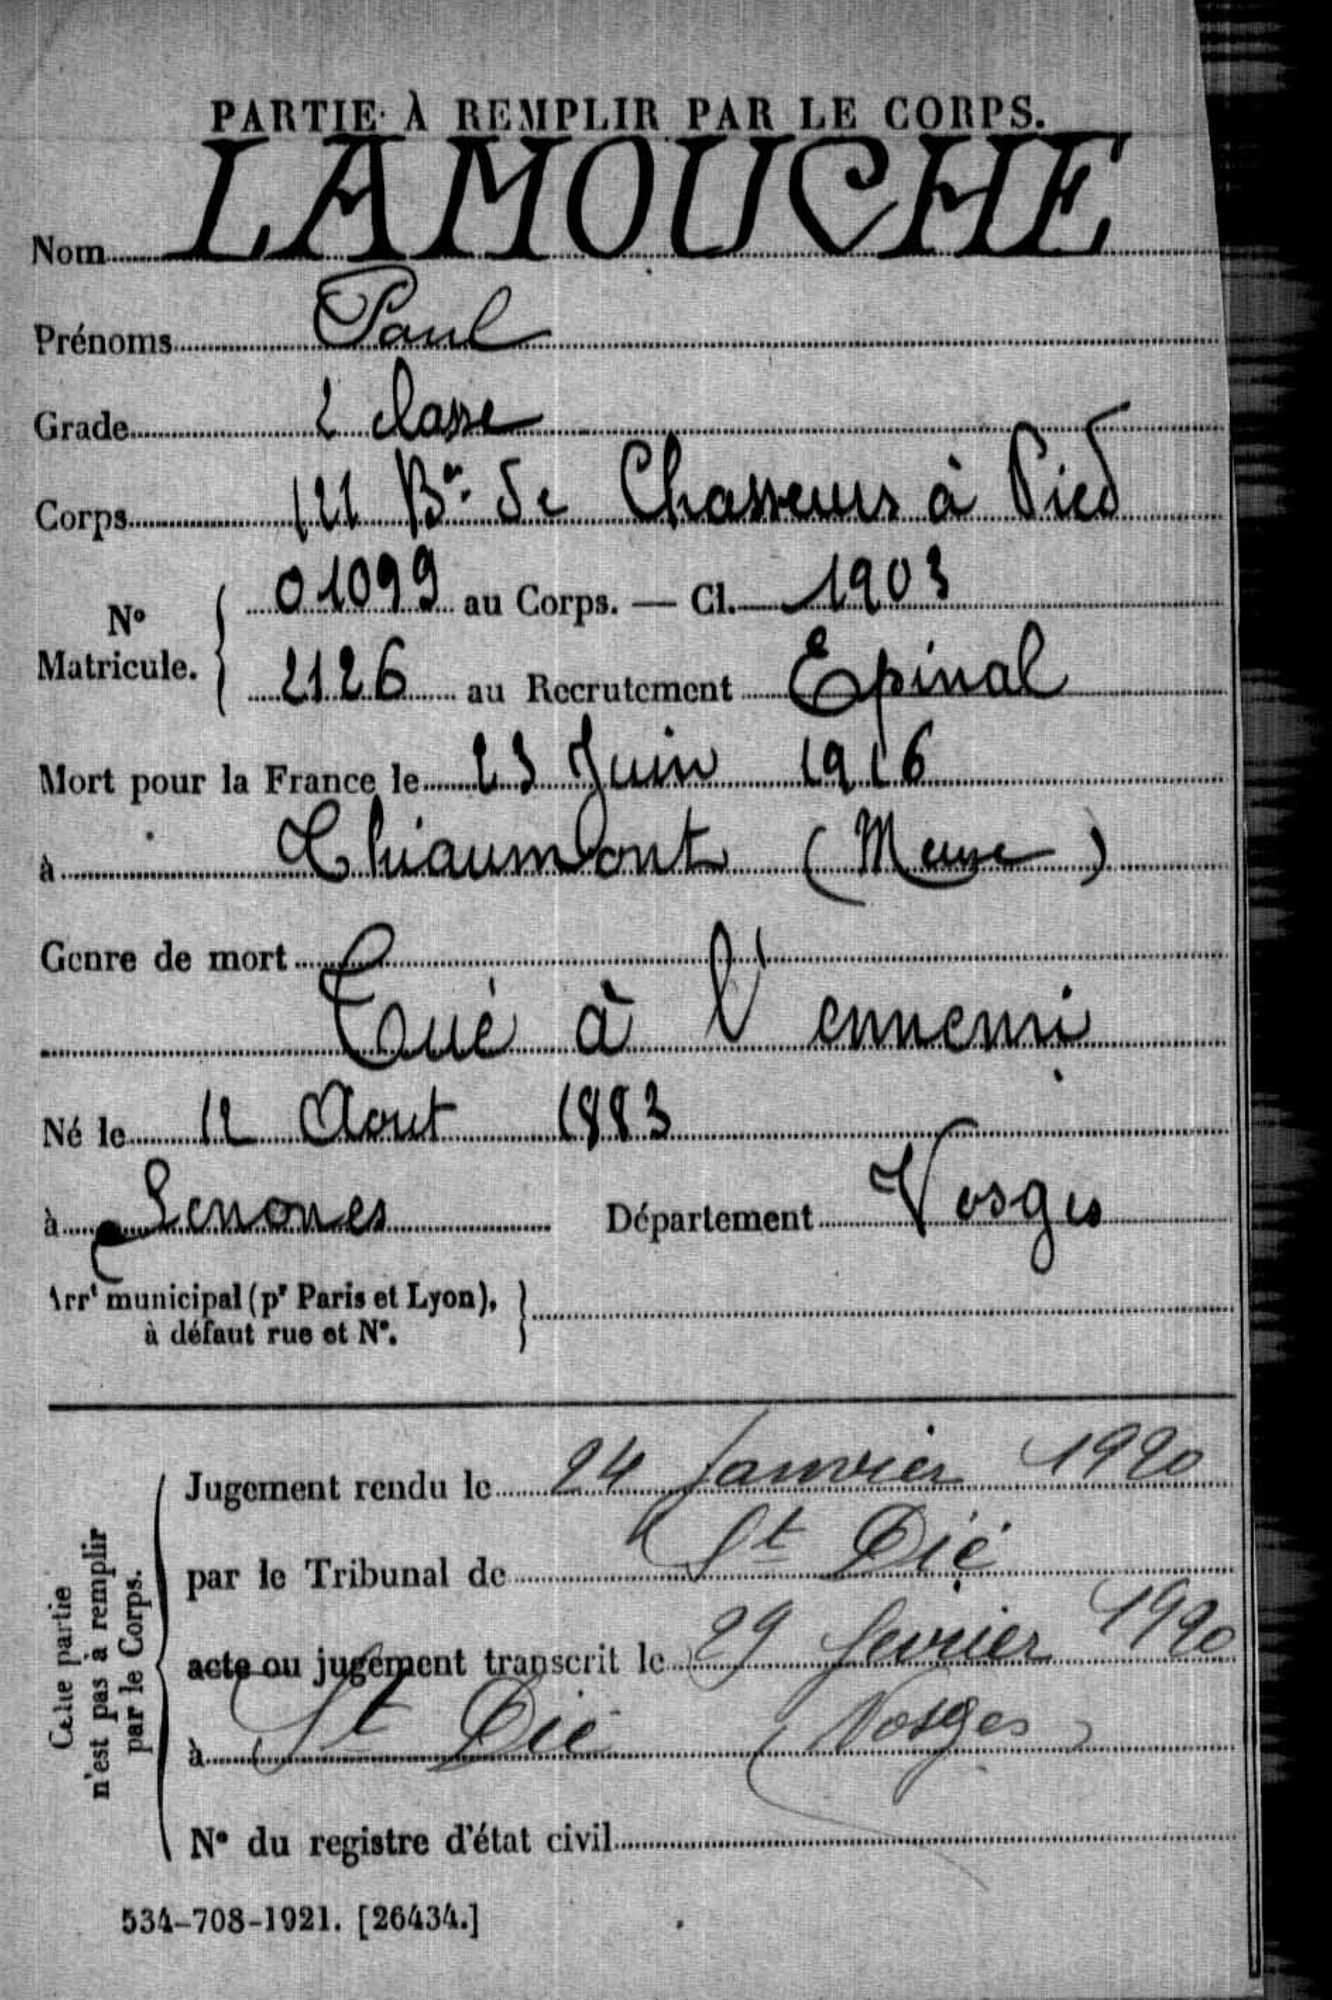 PARTIE À REMPLIR PAR LE CORPS.
Nom LAMOUCHE
Prénoms Paul
Grade 2 classe
Corps 121 Bon de Chasseurs à Pied
No Matricule. { 01099 au Corps. — Cl. 1903
2126 au Recrutement Epinal
Mort pour la France le 23 Juin 1916
à Thiaumont (Meuse)
Genre de mort
Tué à l'ennemi
Né le 12 Aout 1883
à Senones Département Vosges
Arrt municipal (pr Paris et Lyon), }
à défaut rue et N°.
Cette partie
n'est pas à remplir
par le Corps.
Jugement rendu le 24 Janvier 1920
par le Tribunal de St Dié
acte ou jugement transcrit le 29 fevrier 1920
à St Dié (Vosges)
N° du registre d'état civil
534-708-1921. [26434.]